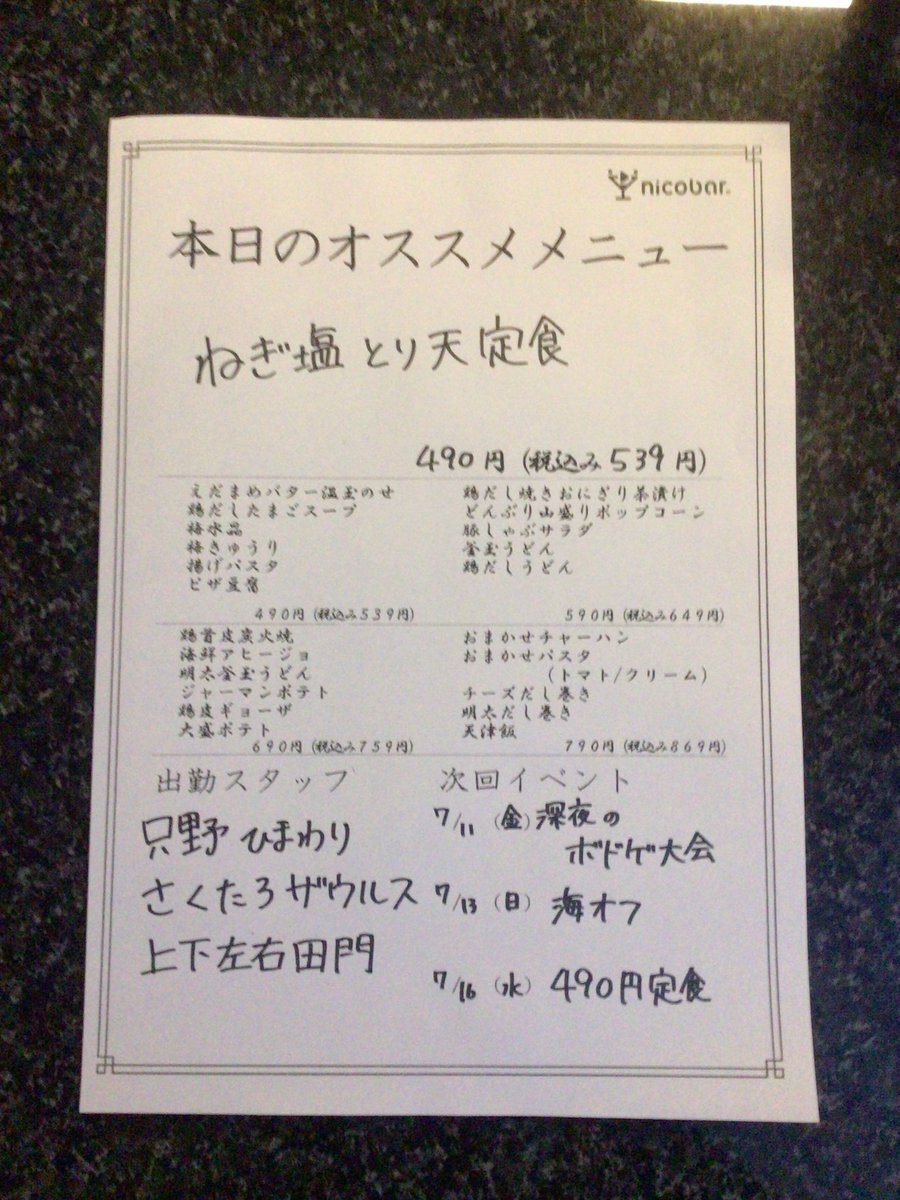 nicobar
本日のオススメメニュー
ねぎ塩 とり天 定食
490円(税込み539円)
えだまめバター温玉のせ
鶏だしたまごスープ
梅水晶
梅きゅうり
揚げパスタ
ピザ豆腐
490円(税込み539円)
鶏だし焼きおにぎり茶漬け
どんぶり山盛りポップコーン
豚しゃぶサラダ
釜玉うどん
鶏だしうどん
590円(税込み649円)
鶏首皮炭火焼
海鮮アヒージョ
明太釜玉うどん
ジャーマンポテト
鶏皮ギョーザ
大盛ポテト
690円(税込み759円)
おまかせチャーハン
おまかせパスタ
(トマト/クリーム)
チーズだし巻き
明太だし巻き
天津飯
790円(税込み869円)
出勤スタッフ
只野 ひまわり
さくたろザウルス
上下左右田門
次回イベント
7/11 (金) 深夜の
ボドゲ大会
7/13 (日) 海オフ
7/16 (水) 490円定食